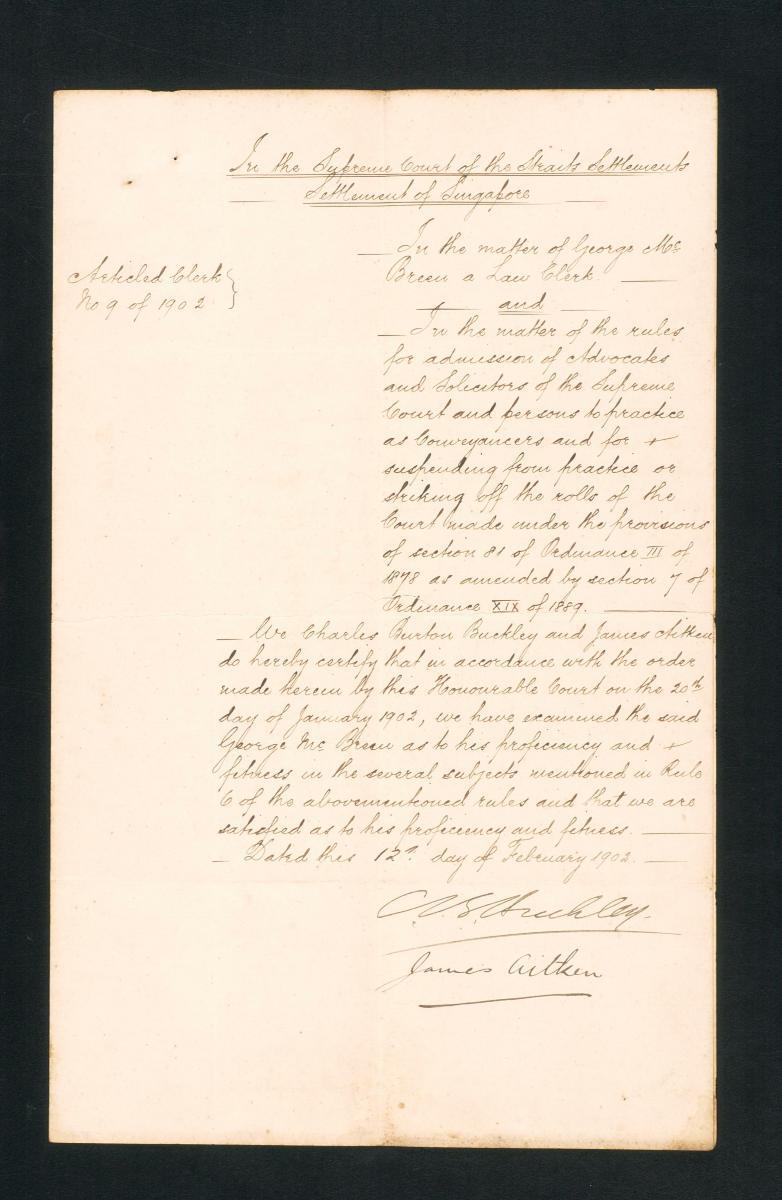 In the Supreme Court of the Straits Settlements
Settlement of Singapore
In the matter of George Mc
Breen a Law Clerk.
Articled Clerk
No 9 of 1902
and
In the matter of the rules
for admission of Advocates
and Solicitors of the Supreme
Court and persons to practice
as Conveyancers and for +
suspending from practice or
striking off the rolls of the
Court made under the provisions
of section 81 of Ordinance III of
1878 as amended by section 7 of
Ordinance XIX of 1889.
We Charles Burton Buckley and James Aitken
do hereby certify that in accordance with the order
made herein by this Honourable Court on the 20th
day of January 1902, we have examined the said
George Mc Breen as to his proficiency and +
fitness in the several subjects mentioned in Rule
6 of the abovementioned rules and that we are
satisfied as to his proficiency and fitness.
Dated this 12th day of February 1902.
C. B. Buckley.
James Aitken